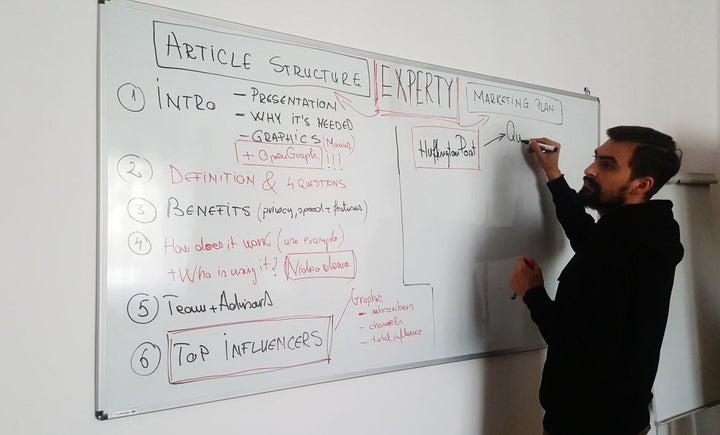 ARTICLE STRUCTURE
EXPERTY
MARKETING PLAN
1 INTRO - PRESENTATION
- WHY IT'S NEEDED
- GRAPHICS
+ OpenGraph
(Marius) !!!
2 DEFINITION & 4 QUESTIONS
3 BENEFITS (privacy, speed + features)
4 How does it work (use example)
+ Who is using it? Video demo
5 Team + Advisors
6 TOP INFLUENCERS
Graphic
- subscribers
- channels
- total influence
Huffington Post
Qu